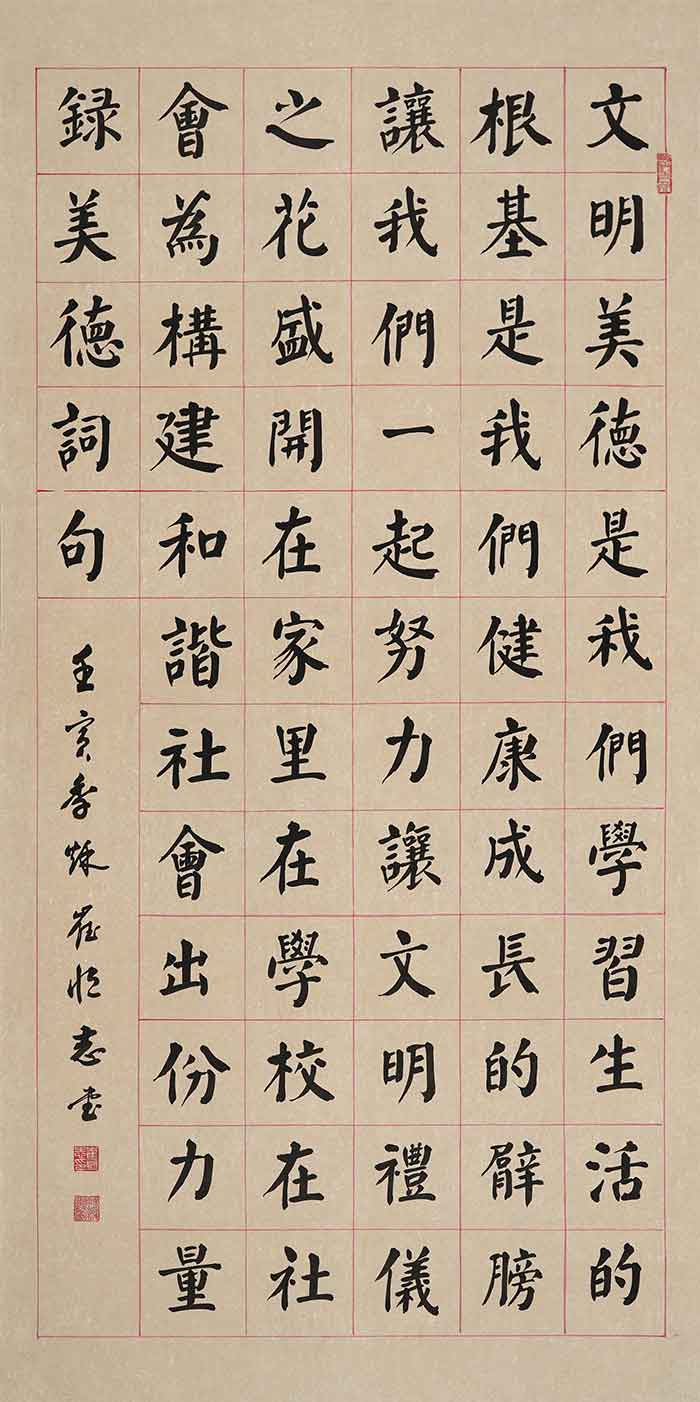 文明美德是我們學習生活的
根基是我們健康成長的臂膀
讓我們一起努力讓文明禮儀
之花盛開在家里在學校在社
會為構建和諧社會出份力量
録美德詞句
壬寅季秌崔恒志書